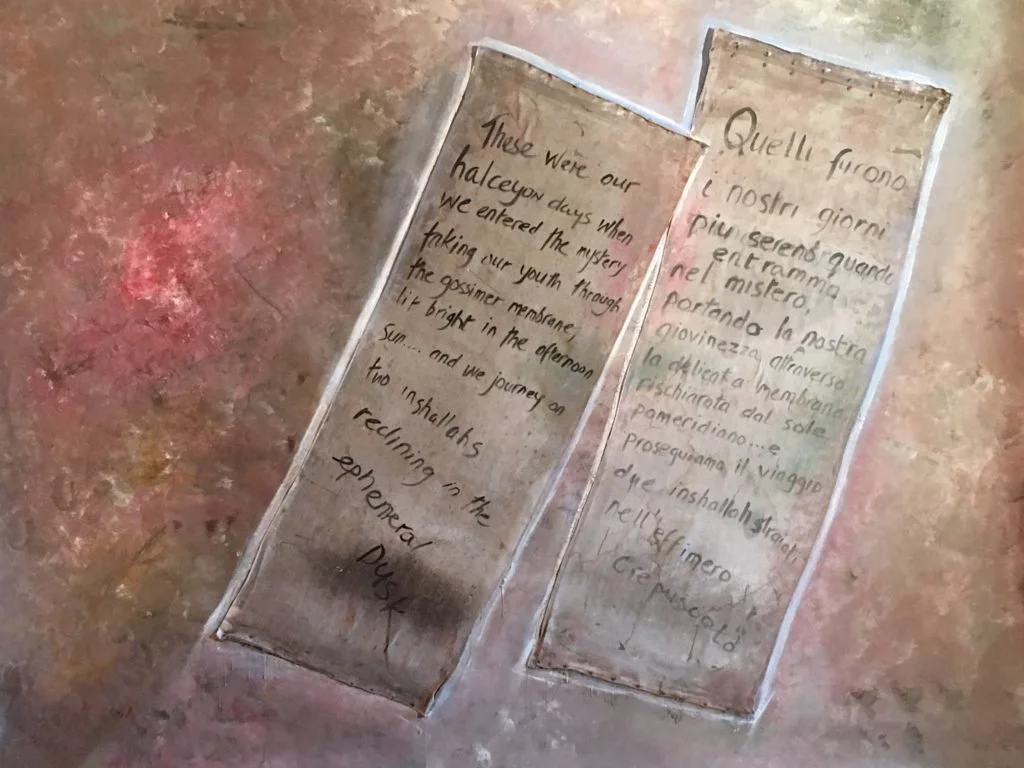 These were our
halceyon days when
we entered the mystery
taking our youth through
the gossimer membrane,
lit bright in the afternoon
sun.... and we journey on
two inshallahs
reclining in the
ephemeral
Dusk
Quelli furono
i nostri giorni
piu sereni quando
entramma
nel mistero,
portando la nostra
giovinezza attraverso
la delicata membrana
rischiarata dal sole
pomeridiano... e
proseguiamo il viaggio
due inshallah straiati
nell'effimero
Crepuscolo